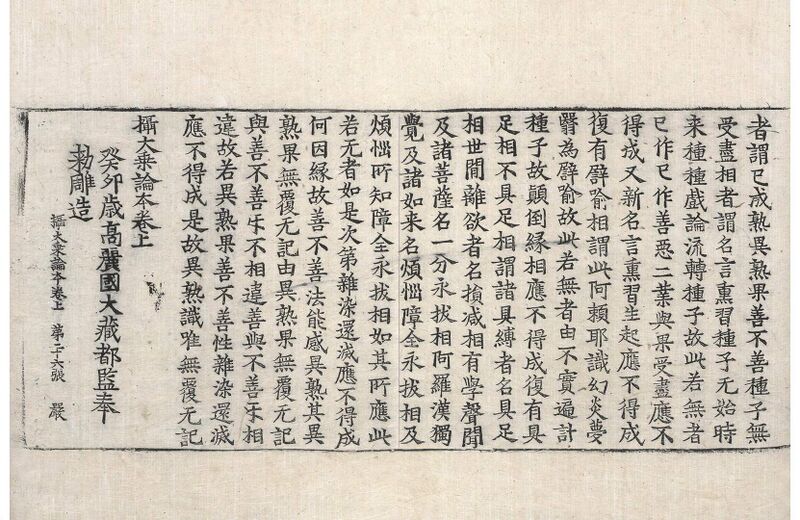 者謂已成熟異熟果善不善種子無
受盡相者謂名言熏習種子无始時
来種種戲論流轉種子故此若無者
已作已作善惡二業與果受盡應不
得成又新名言熏習生起應不得成
復有譬喻相謂此阿賴耶識幻炎夢
翳為譬喻故此若無者由不實遍計
種子故顛倒緣相應不得成復有具
足相不具足相謂諸具縛者名具足
相世間離欲者名損減相有學聲聞
及諸菩薩名一分永拔相阿羅漢獨
覺及諸如来名煩惱障全永拔相及
煩惱所知障全永拔相如其所應此
若无者如是次第雜染還滅應不得成
何因緣故善不善法能感異熟其異
熟果無覆無記由異熟果無覆无記
與善不善互不相違善與不善互相
違故若異熟果善不善性雜染還滅
應不得成是故異熟識唯無覆无記
攝大乗論本卷上
癸卯歳高麗國大藏都監奉
勑雕造
攝大乗論本卷上 第二十六張 嚴